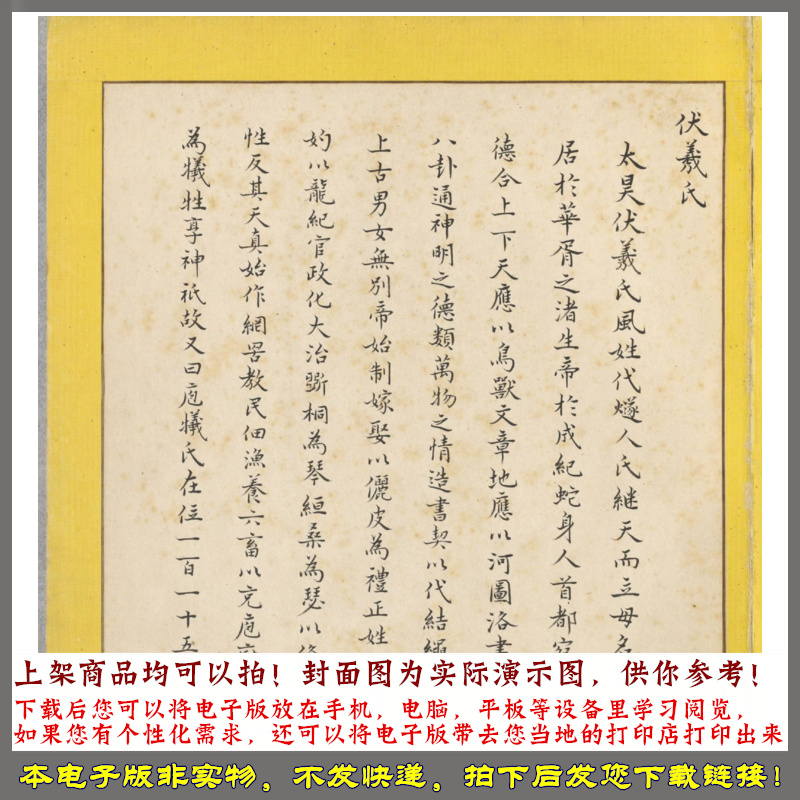 伏羲氏
太昊伏羲氏風姓代燧人氏継天而立母名
居於華胥之渚生帝於成紀蛇身人首都
德合上下天應以鳥獸文章地應以河圖洛書
八卦通神明之德類萬物之情造書契以代結繩
上古男女無別帝始制嫁娶以儷皮為禮正姓
妁以龍紀官政化大治斲桐為琴絙桑為瑟以
性反其天真始作網罟教民佃漁養六畜以充庖
為犧牲享神祇故又曰庖犧氏在位一百一十五
上架商品均可以拍！封面图为实际演示图，供你参考！
下载后您可以将电子版放在手机，电脑，平板等设备里学习阅览，
如果您有个性化需求，还可以将电子版带去您当地的打印店打印出来
本电子版非实物，不发快递，拍下后发您下载链接！